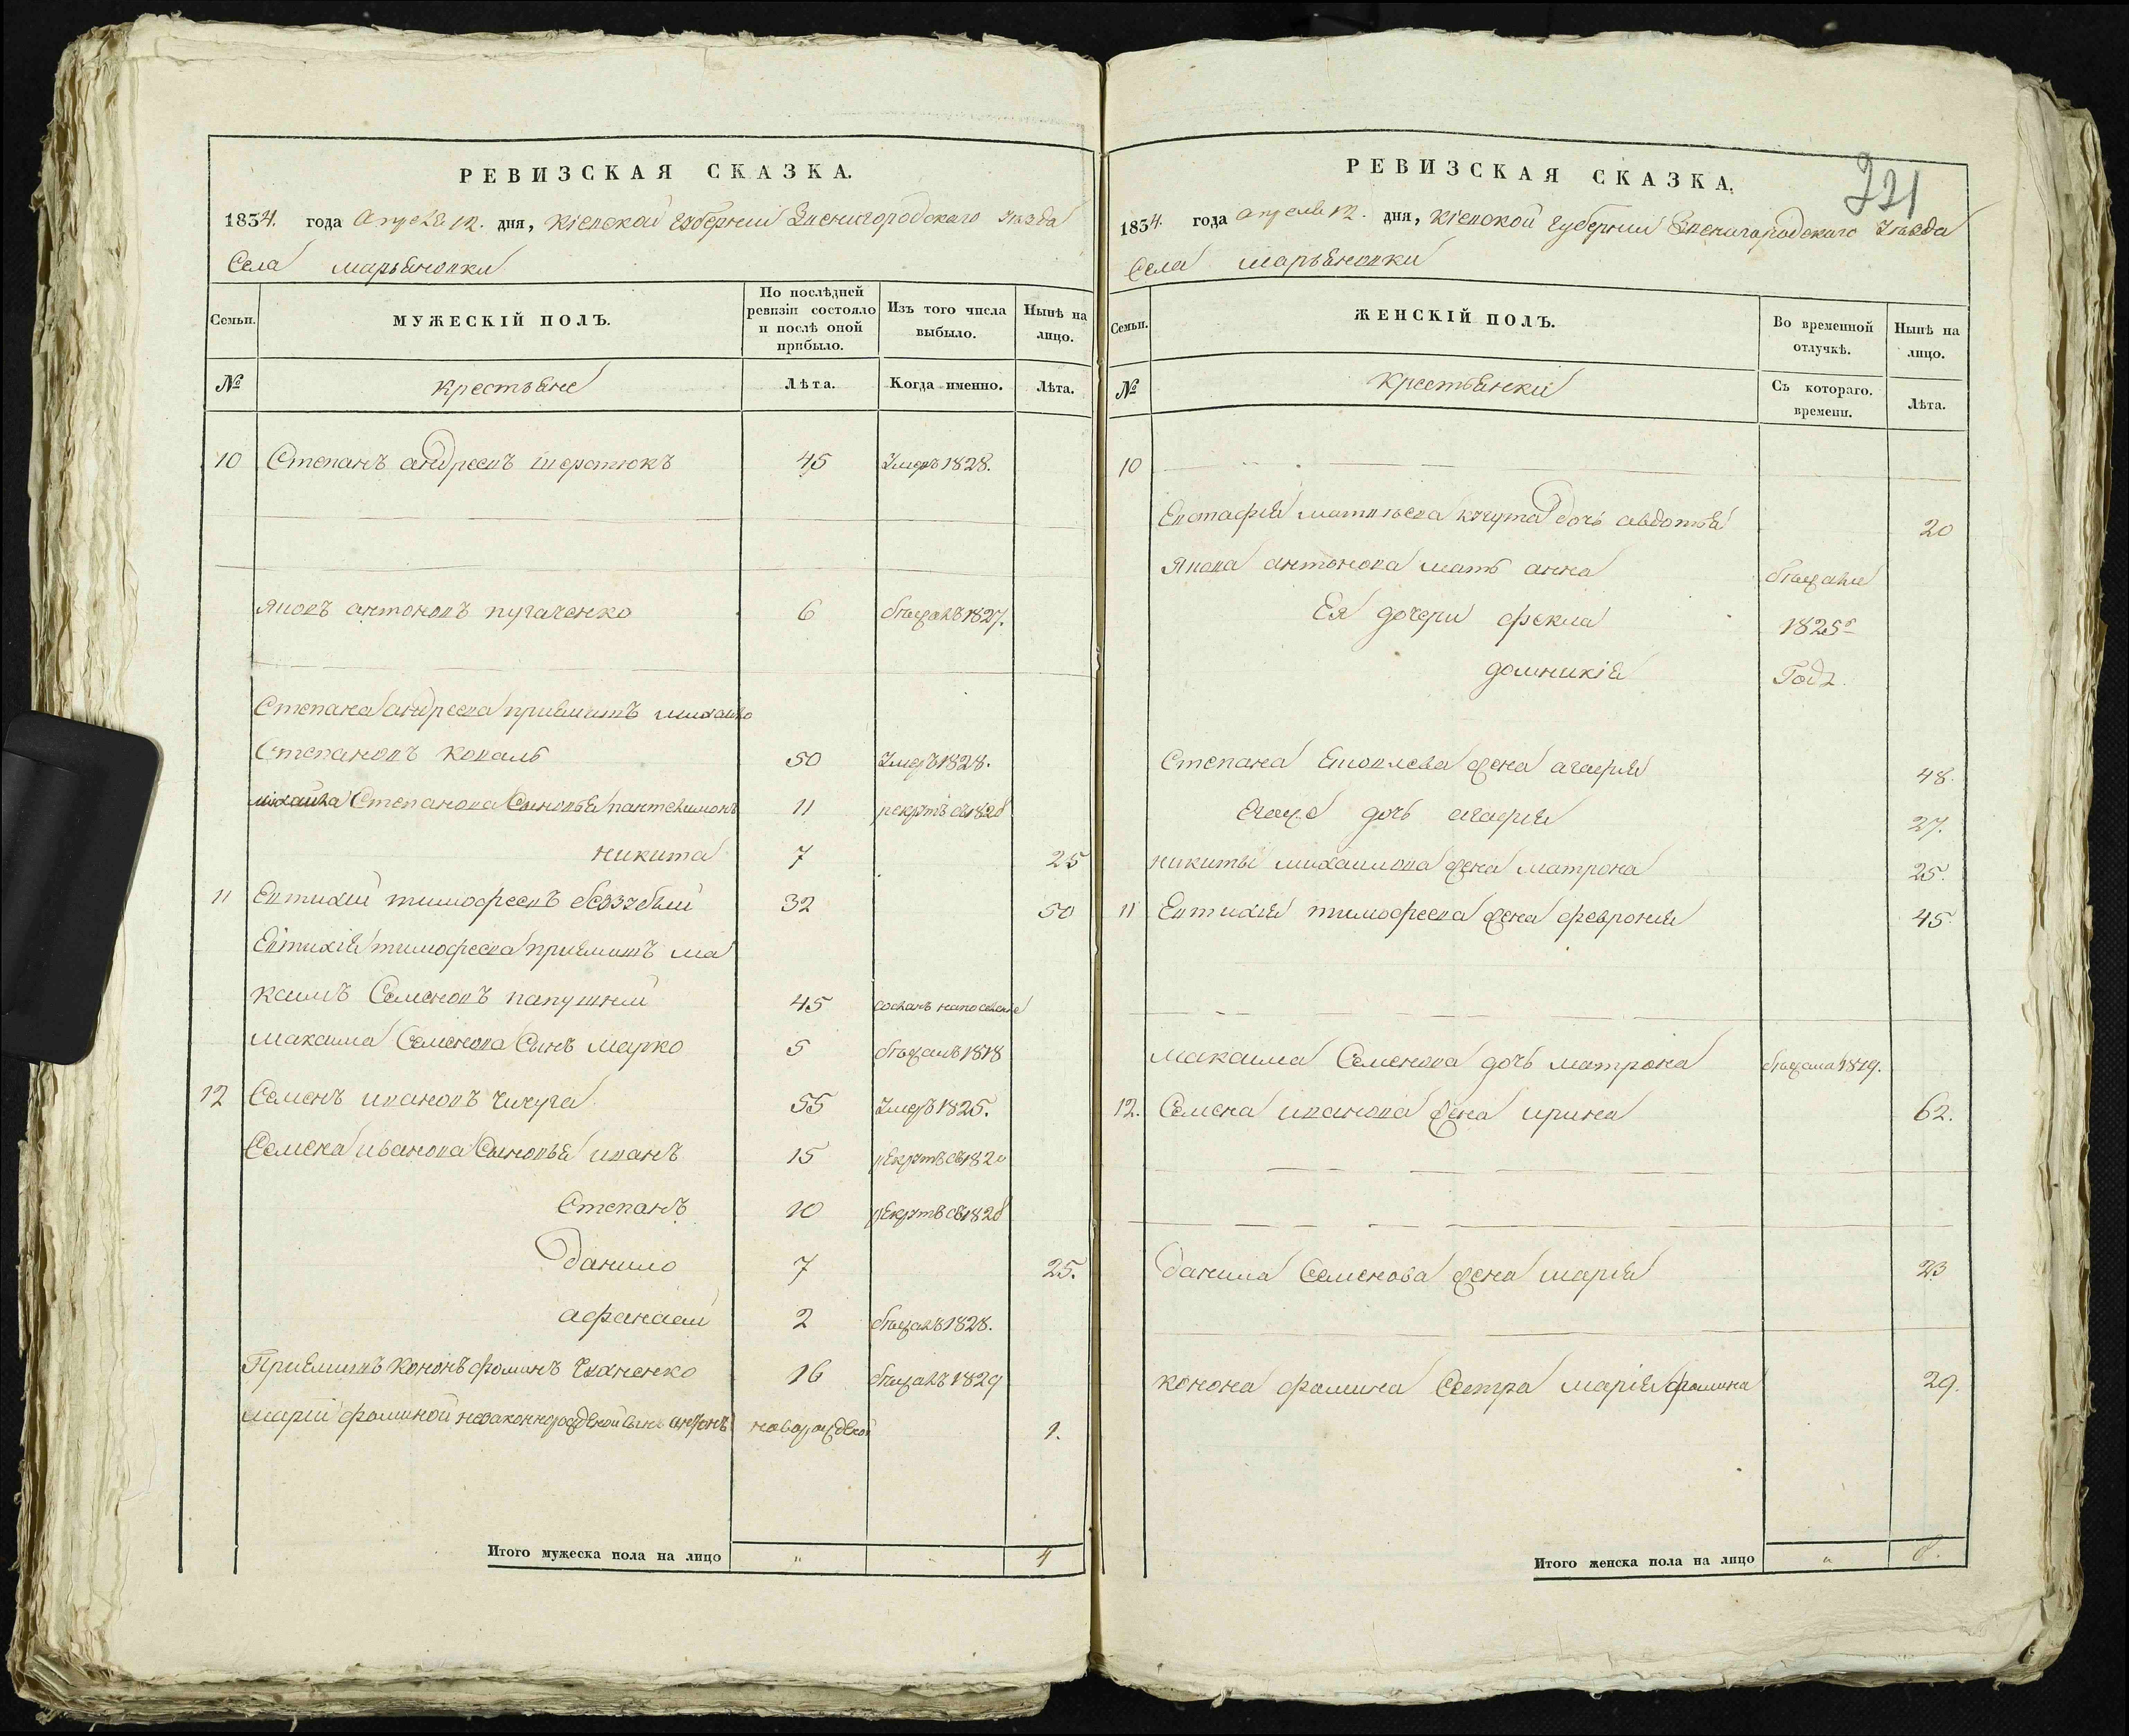 РЕВИЗСКАЯ СКАЗКА.
1834. года Апреля 12. дня, Кіевской губерніи Звенигородскаго уѣзда
Села Марьяновки
Семьи. МУЖЕСКІЙ ПОЛЪ. По послѣдней ревизіи состояло и послѣ оной прибыло. Изъ того числа выбыло. Нынѣ на лицо.
№ Крестьяне Лѣта. Когда именно. Лѣта.
10 Степанъ андреевъ 45 Умеръ 1828.
Яковъ антоновъ пугаченко 6 бѣжалъ 1827.
Степана андреева приймитъ михайло
Степановъ коваль 50 Умеръ 1828.
михайла Степанова Сыновья пантелимонъ 11 рекрутъ съ 1828
никита 7 25
11 Евтихій тимофеевъ беззубый 32 50
Евтихія тимофеева приймитъ ма
ксимъ Семеновъ папушный 45 сосланъ на поселеніе
максима Семенова Сынъ марко 5 бѣжалъ 1818
12 Семенъ ивановъ Чичуга 55 Умеръ 1825.
Семена иванова Сыновья иванъ 15 рекрутъ съ 1820
Степанъ 10 рекрутъ съ 1828
данило 7 25.
афанасій 2 бѣжалъ 1828.
Приймитъ кононъ фоминъ 16 бѣжалъ 1829
маріи фоминой незаконнорожденой сынъ новорожденой 1.
Итого мужеска пола на лицо " " 4
РЕВИЗСКАЯ СКАЗКА.
221
1834. года апреля 12. дня, Кіевской губерніи Звенигородскаго Уѣзда
Села Марьяновки
Семьи. ЖЕНСКІЙ ПОЛЪ. Во временной отлучкѣ. Нынѣ на лицо.
№ Крестьянки Съ котораго. времени. Лѣта.
10
Евстафія матвѣева дочь авдотья 20
Якова антонова мать анна бѣжали
Ея дочери фекла 1825го
домникія Года.
Степана жена агафія 48.
Егожъ дочь агафія 27.
никиты михаилова жена матрона 25.
11 Евтихія тимофеева жена февронія 45.
Максима Семенова дочь матрона бѣжала 1829.
12. Семена иванова жена ирина 62.
данила Семенова жена марія 23
конона фомина Сестра марія фомина 29.
Итого женска пола на лицо " 8.